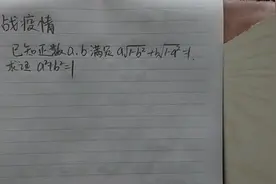 战疫情
已知正数a.b满足a√1-b²+b√1-a²=1.
求证a²+b²=1